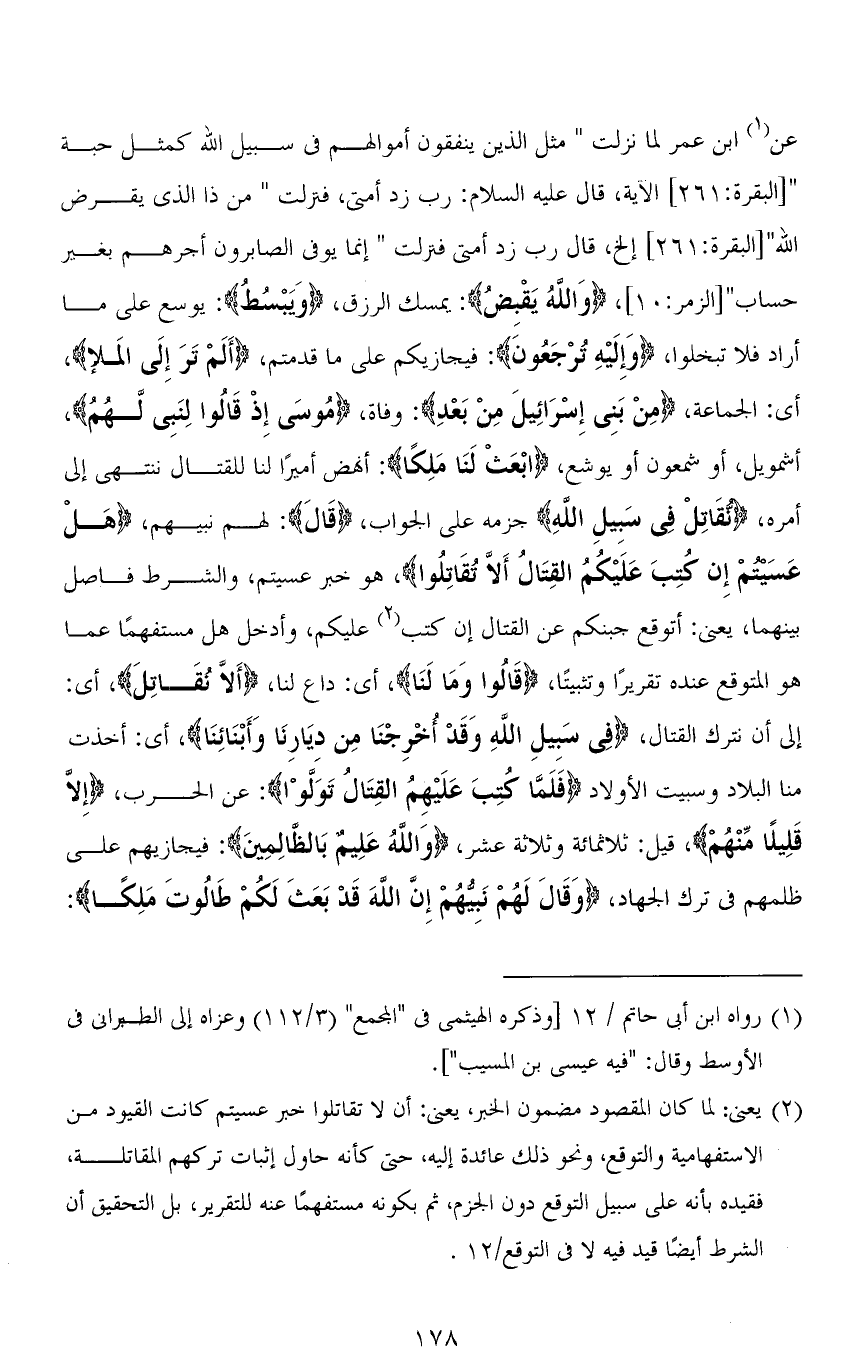 عن(١) ابن عمر لما نزلت " مثل الذين ينفقون أموالهم فى سبيل الله كمثل حبة
"[البقرة:٢٦١] الآية، قال عليه السلام: رب زد أمتى، فنزلت " من ذا الذى يقرض
الله"[البقرة:٢٦١] إلخ، قال رب زد أمتى فنزلت " إنما يوفى الصابرون أجرهم بغير
حساب"[الزمر:١٠]، ﴿وَاللَّهُ يَقْبِضُ﴾: يمسك الرزق، ﴿وَيَبْسُطُ﴾: يوسع على ما
أراد فلا تبخلوا، ﴿وَإِلَيْهِ تُرْجَعُونَ﴾: فيجازيكم على ما قدمتم، ﴿أَلَمْ تَرَ إِلَى الَملإِ﴾،
أى: الجماعة، ﴿مِنْ بَنِى إِسْرَائِيلَ مِنْ بَعْدِ﴾: وفاة، ﴿مُوسَى إِذْ قَالُوا لِنَبِى لَّهُمُ﴾،
أشمويل، أو شمعون أو يوشع، ﴿ابْعَثْ لَنَا مَلِكًا﴾: أنهض أميرًا لنا للقتال ننتهى إلى
أمره، ﴿نُقَاتِلْ فِى سَبِيلِ اللَّهِ﴾ جزمه على الجواب، ﴿قَالَ﴾: لهم نبيهم، ﴿هَلْ
عَسَيْتُمْ إِن كُتِبَ عَلَيْكُمُ القِتَالُ أَلاَّ تُقَاتِلُوا﴾، هو خبر عسيتم، والشرط فاصل
بينهما، يعنى: أتوقع جبنكم عن القتال إن كتب(٢) عليكم، وأدخل هل مستفهمًا عما
هو المتوقع عنده تقريرًا وتثبيتًا، ﴿قَالُوا وَمَا لَنَا﴾، أى: داع لنا، ﴿أَلاَّ نُقَاتِلَ﴾، أى:
إلى أن نترك القتال، ﴿فِى سَبِيلِ اللَّهِ وَقَدْ أُخْرِجْنَا مِن دِيَارِنَا وَأَبْنَائِنَا﴾، أى: أخذت
منا البلاد وسبيت الأولاد ﴿فَلَمَّا كُتِبَ عَلَيْهِمُ القِتَالُ تَوَلَّوْا﴾: عن الحرب، ﴿إِلاَّ
قَلِيلًا مِّنْهُمْ﴾، قيل: ثلاثمائة وثلاثة عشر، ﴿وَاللَّهُ عَلِيمٌ بَالظَّالِمِينَ﴾: فيجازيهم على
ظلمهم فى ترك الجهاد، ﴿وَقَالَ لَهُمْ نَبِيُّهُمْ إِنَّ اللَّهَ قَدْ بَعَثَ لَكُمْ طَالُوتَ مَلِكًا﴾:
(١) رواه ابن أبى حاتم / ١٢ [وذكره الهيثمى فى "المجمع" (١١٢/٣) وعزاه إلى الطبرانى فى
الأوسط وقال: "فيه عيسى بن المسيب"].
(٢) يعنى: لما كان المقصود مضمون الخبر، يعنى: أن لا تقاتلوا خبر عسيتم كانت القيود من
الاستفهامية والتوقع، ونحو ذلك عائدة إليه، حتى كأنه حاول إثبات تركهم المقاتلة،
فقيده بأنه على سبيل التوقع دون الجزم، ثم بكونه مستفهمًا عنه للتقرير، بل التحقيق أن
الشرط أيضًا قيد فيه لا فى التوقع/١٢ .
١٧٨